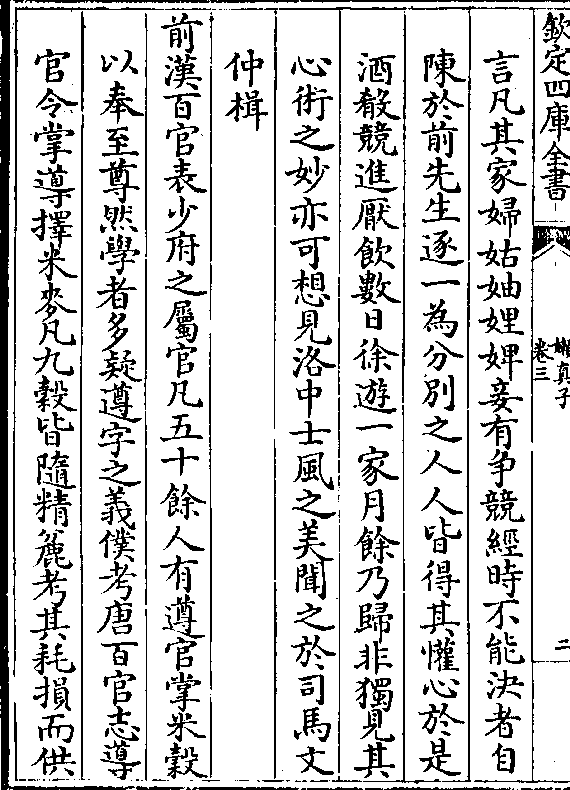 欽定四庫全書
嬾真子
卷三
二
言凡其家婦姑妯娌婢妾有争競經時不能決者自
陳於前先生逐一為分別之人人皆得其懽心於是
酒殽競進厭飲數日徐遊一家月餘乃歸非獨見其
心術之妙亦可想見洛中士風之美聞之於司馬文
仲楫
前漢百官表少府之屬官凡五十餘人有遵官掌米穀
以奉至尊然學者多疑遵字之義僕考唐百官志導
官令掌導擇米麥凡九穀皆隨精麄考其耗損而供